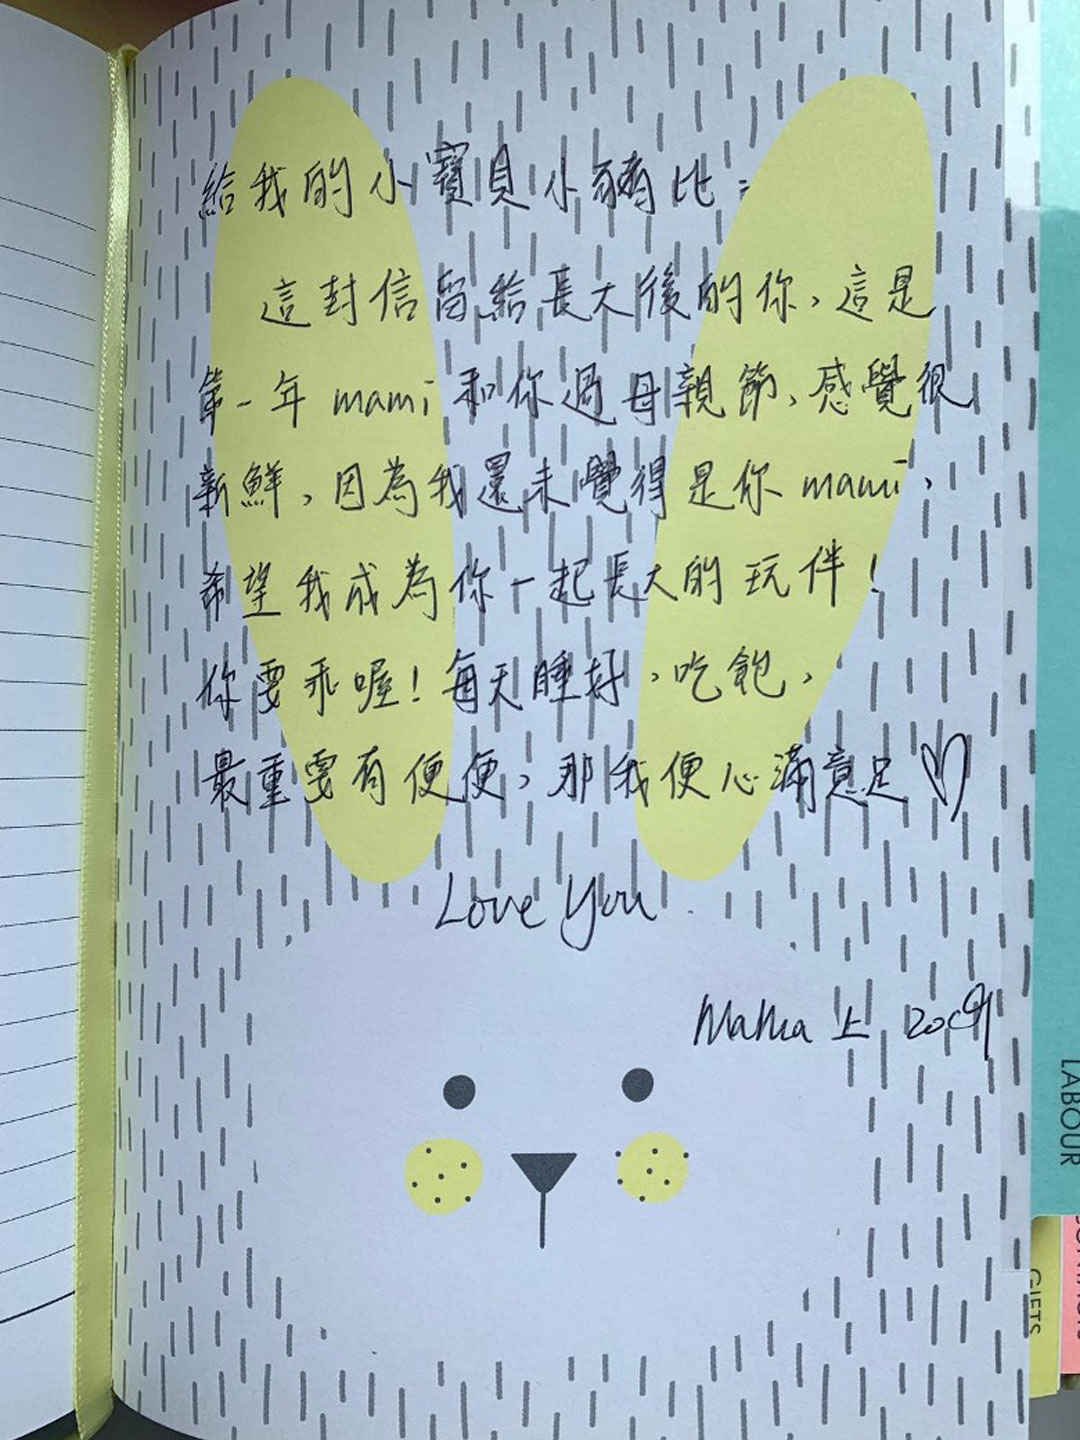 給我的小寶貝小豬比：
這封信留給長大後的你，這是
第一年 mami 和你過母親節，感覺很
新鮮，因為我還未覺得是你 mami，
希望我成為你一起長大的玩伴！
你要乖喔！每天睡好，吃飽，
最重要有便便，那我便心滿意足♡
Love You
MaMa 上
LABOUR
GIFTS